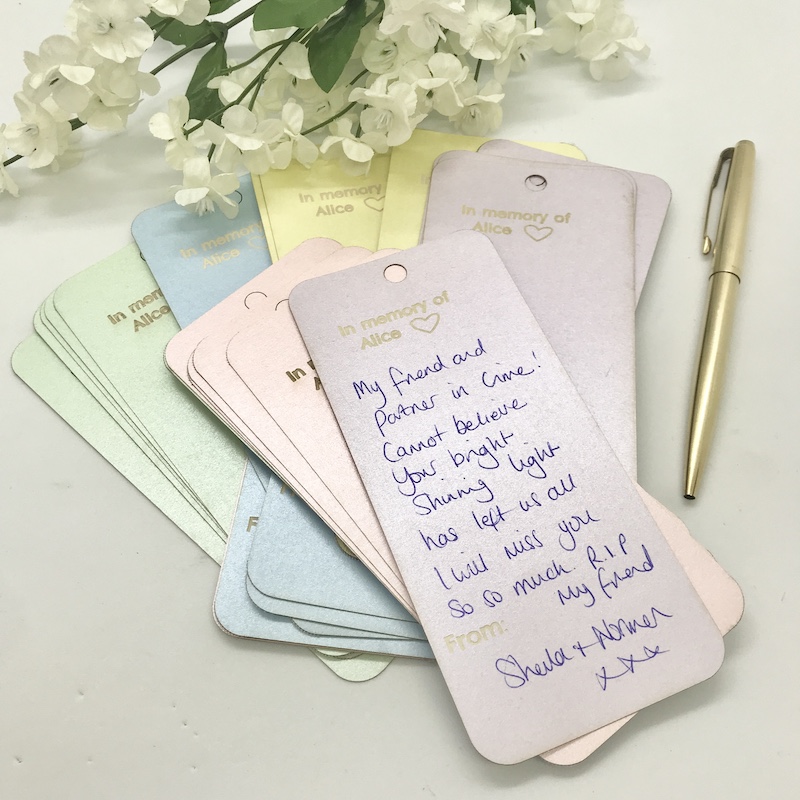 In memory of
Alice
In memory
Alice
In memory
Alice
In mem
Alice
In
A
In memory of
Alice
My friend and
Partner in Crime!
Cannot believe
Your bright
Shining light
has left us all
I will miss you
so so much. R.I.P
My friend
From:
Sheila + Norman
xxx
F